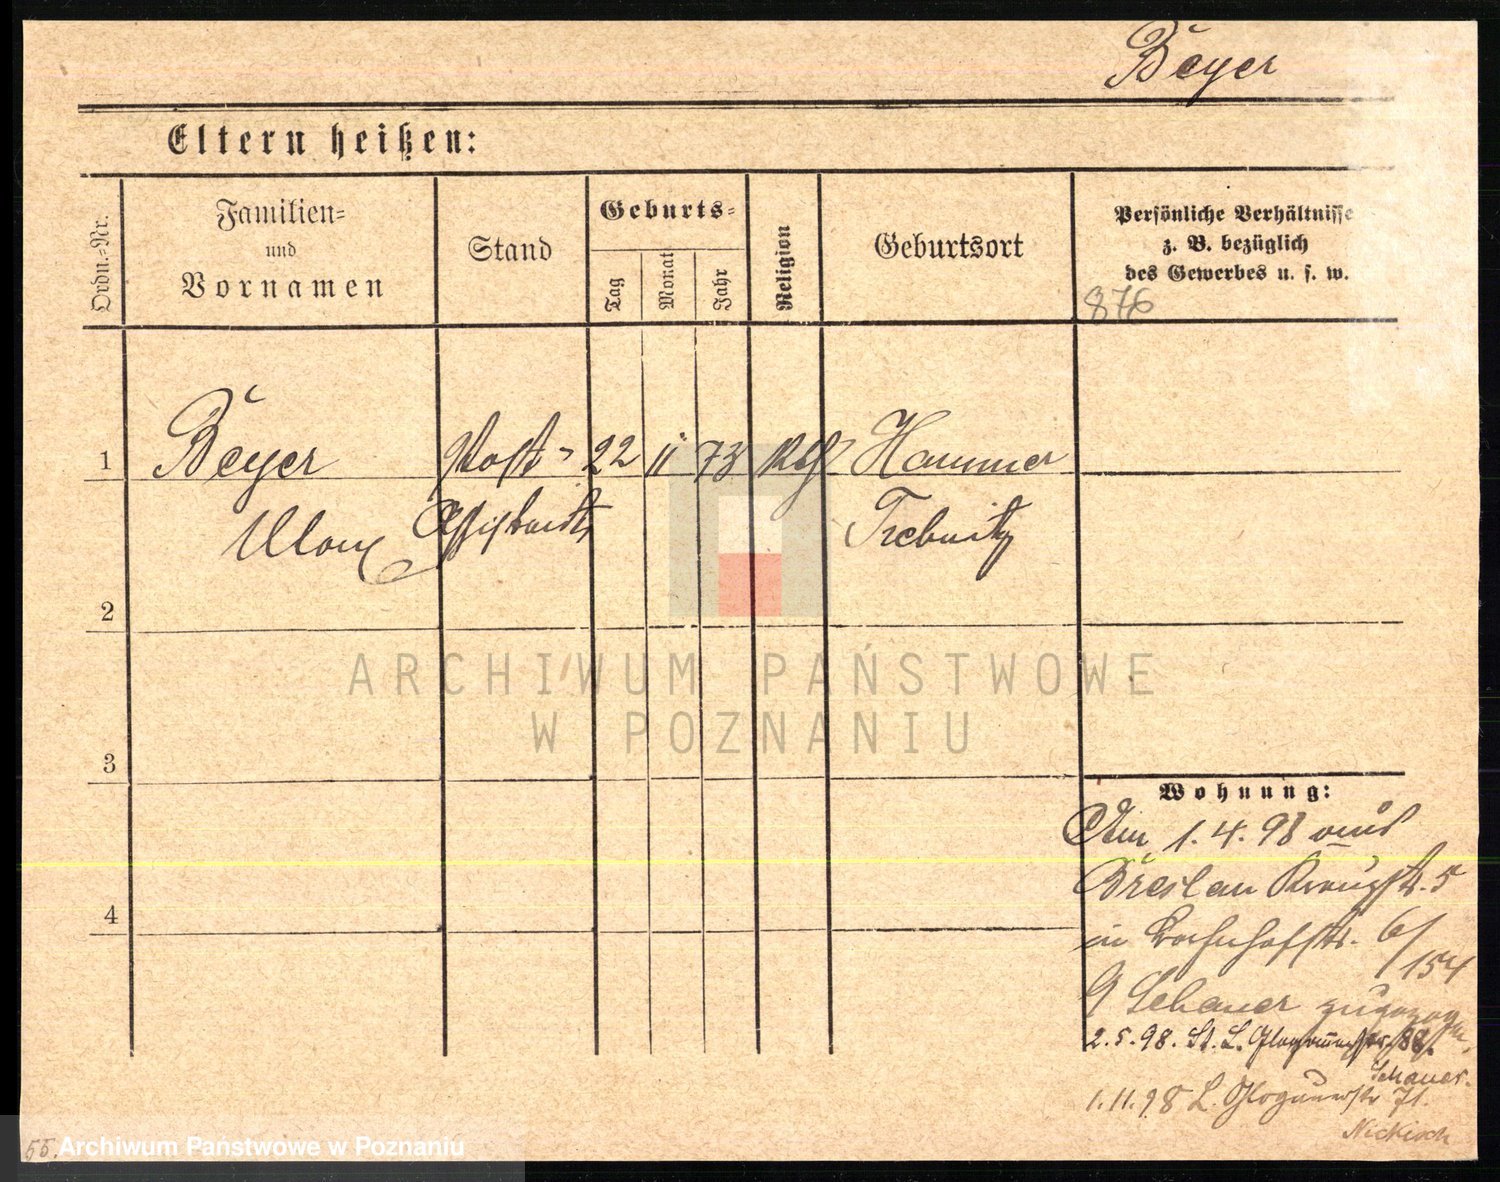 Beyer
Eltern heißen:
Ordn.=Nr.
Familien=
und
Vornamen
Stand
Geburts=
Tag
Monat
Jahr
Religion
Geburtsort
Persönliche Verhältnisse
z. B. bezüglich
des Gewerbes u. s. w.
876
1
Beyer
Post-
22
11
73
Hammer
Max
Assistent
Trebnitz
2
3
4
ARCHIWUM PAŃSTWOWE
W POZNANIU
Wohnung:
Am 1.4.98 aus
Breslau 5
in Bahnhofstr. 6/
154
Schauer zugezogen
2.5.98. St. L. Glogauerstr. 88.
Schauer.
1.11.98 L. Glogauerstr 71.
Nickisch
55.
Archiwum Państwowe w Poznaniu